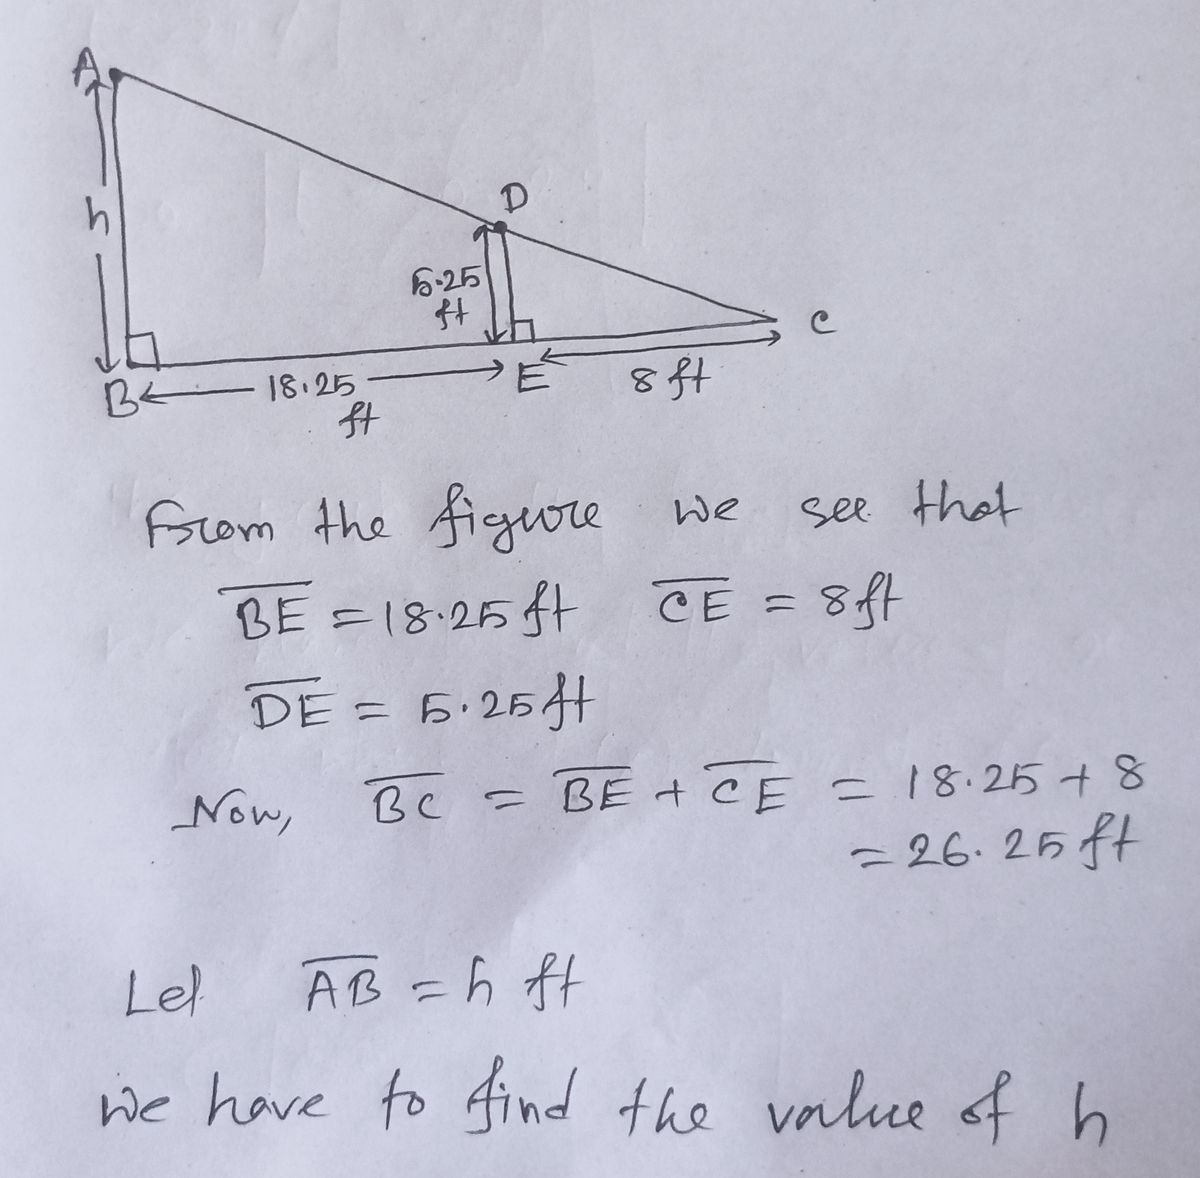 A
h
D
5.25
ft
C
B
18.25
ft
E
8 ft
From the figure we see that
BE = 18.25 ft CE = 8 ft
DE = 5.25 ft
Now, BC = BE + CE = 18.25 + 8
= 26.25 ft
Let AB = h ft
we have to find the value of h